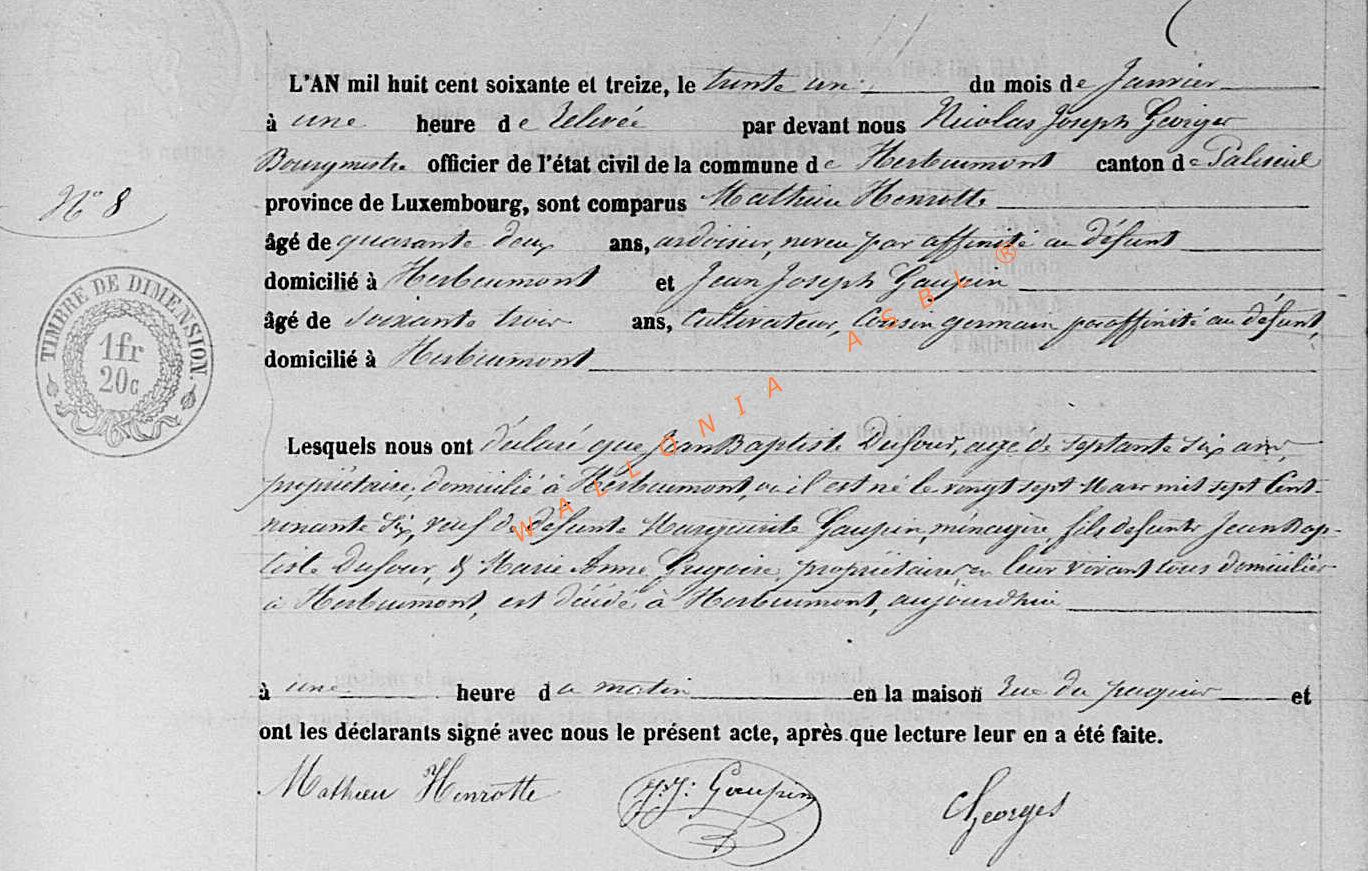 L'AN mil huit cent soixante et treize, le trente un du mois de Janvier
à une heure de relevée par devant nous Nicolas Joseph Georges
Bourgmestre officier de l'état civil de la commune de Herbeumont canton de Paliseul
N° 8
province de Luxembourg, sont comparus Mathieu Henrotte
âgé de quarante deux ans, ardoisier, neveu par affinité au défunt
domicilié à Herbeumont et Jean Joseph Gaupin
âgé de soixante trois ans, Cultivateur, Cousin germain par affinité au défunt,
domicilié à Herbeumont
TIMBRE DE DIMENSION.
1fr
20c
Lesquels nous ont déclaré que Jean Baptiste Dufour, age de septante six ans,
propriétaire, domicilié à Herbeumont, où il est né le vingt sept Mars mil sept Cent
nonante six, veuf de défunte Marguerite Gaupin, ménagère, fils defunts Jean Bap-
tiste Dufour, & Marie Anne Grégoire, propriétaires, leur vivant tous domiciliés
à Herbeumont, est décédé à Herbeumont, aujourdhui
à une heure du matin en la maison rue du paquis et
ont les déclarants signé avec nous le présent acte, après que lecture leur en a été faite.
Mathieu Henrotte J. J. Gaupin Georges
WALLONIA ASBL ®